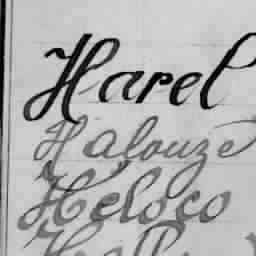 Harel
Halouze
Heloco